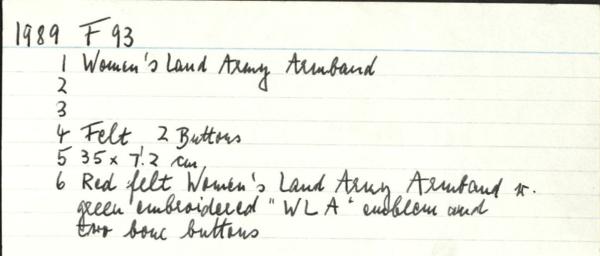 1989 F 93
1 Women's Land Army Armband
2
3
4 Felt 2 Buttons
5 35 x 7.2 cm
6 Red felt Women's Land Army Armband w.
green embroidered "WLA" emblem and
two bone buttons